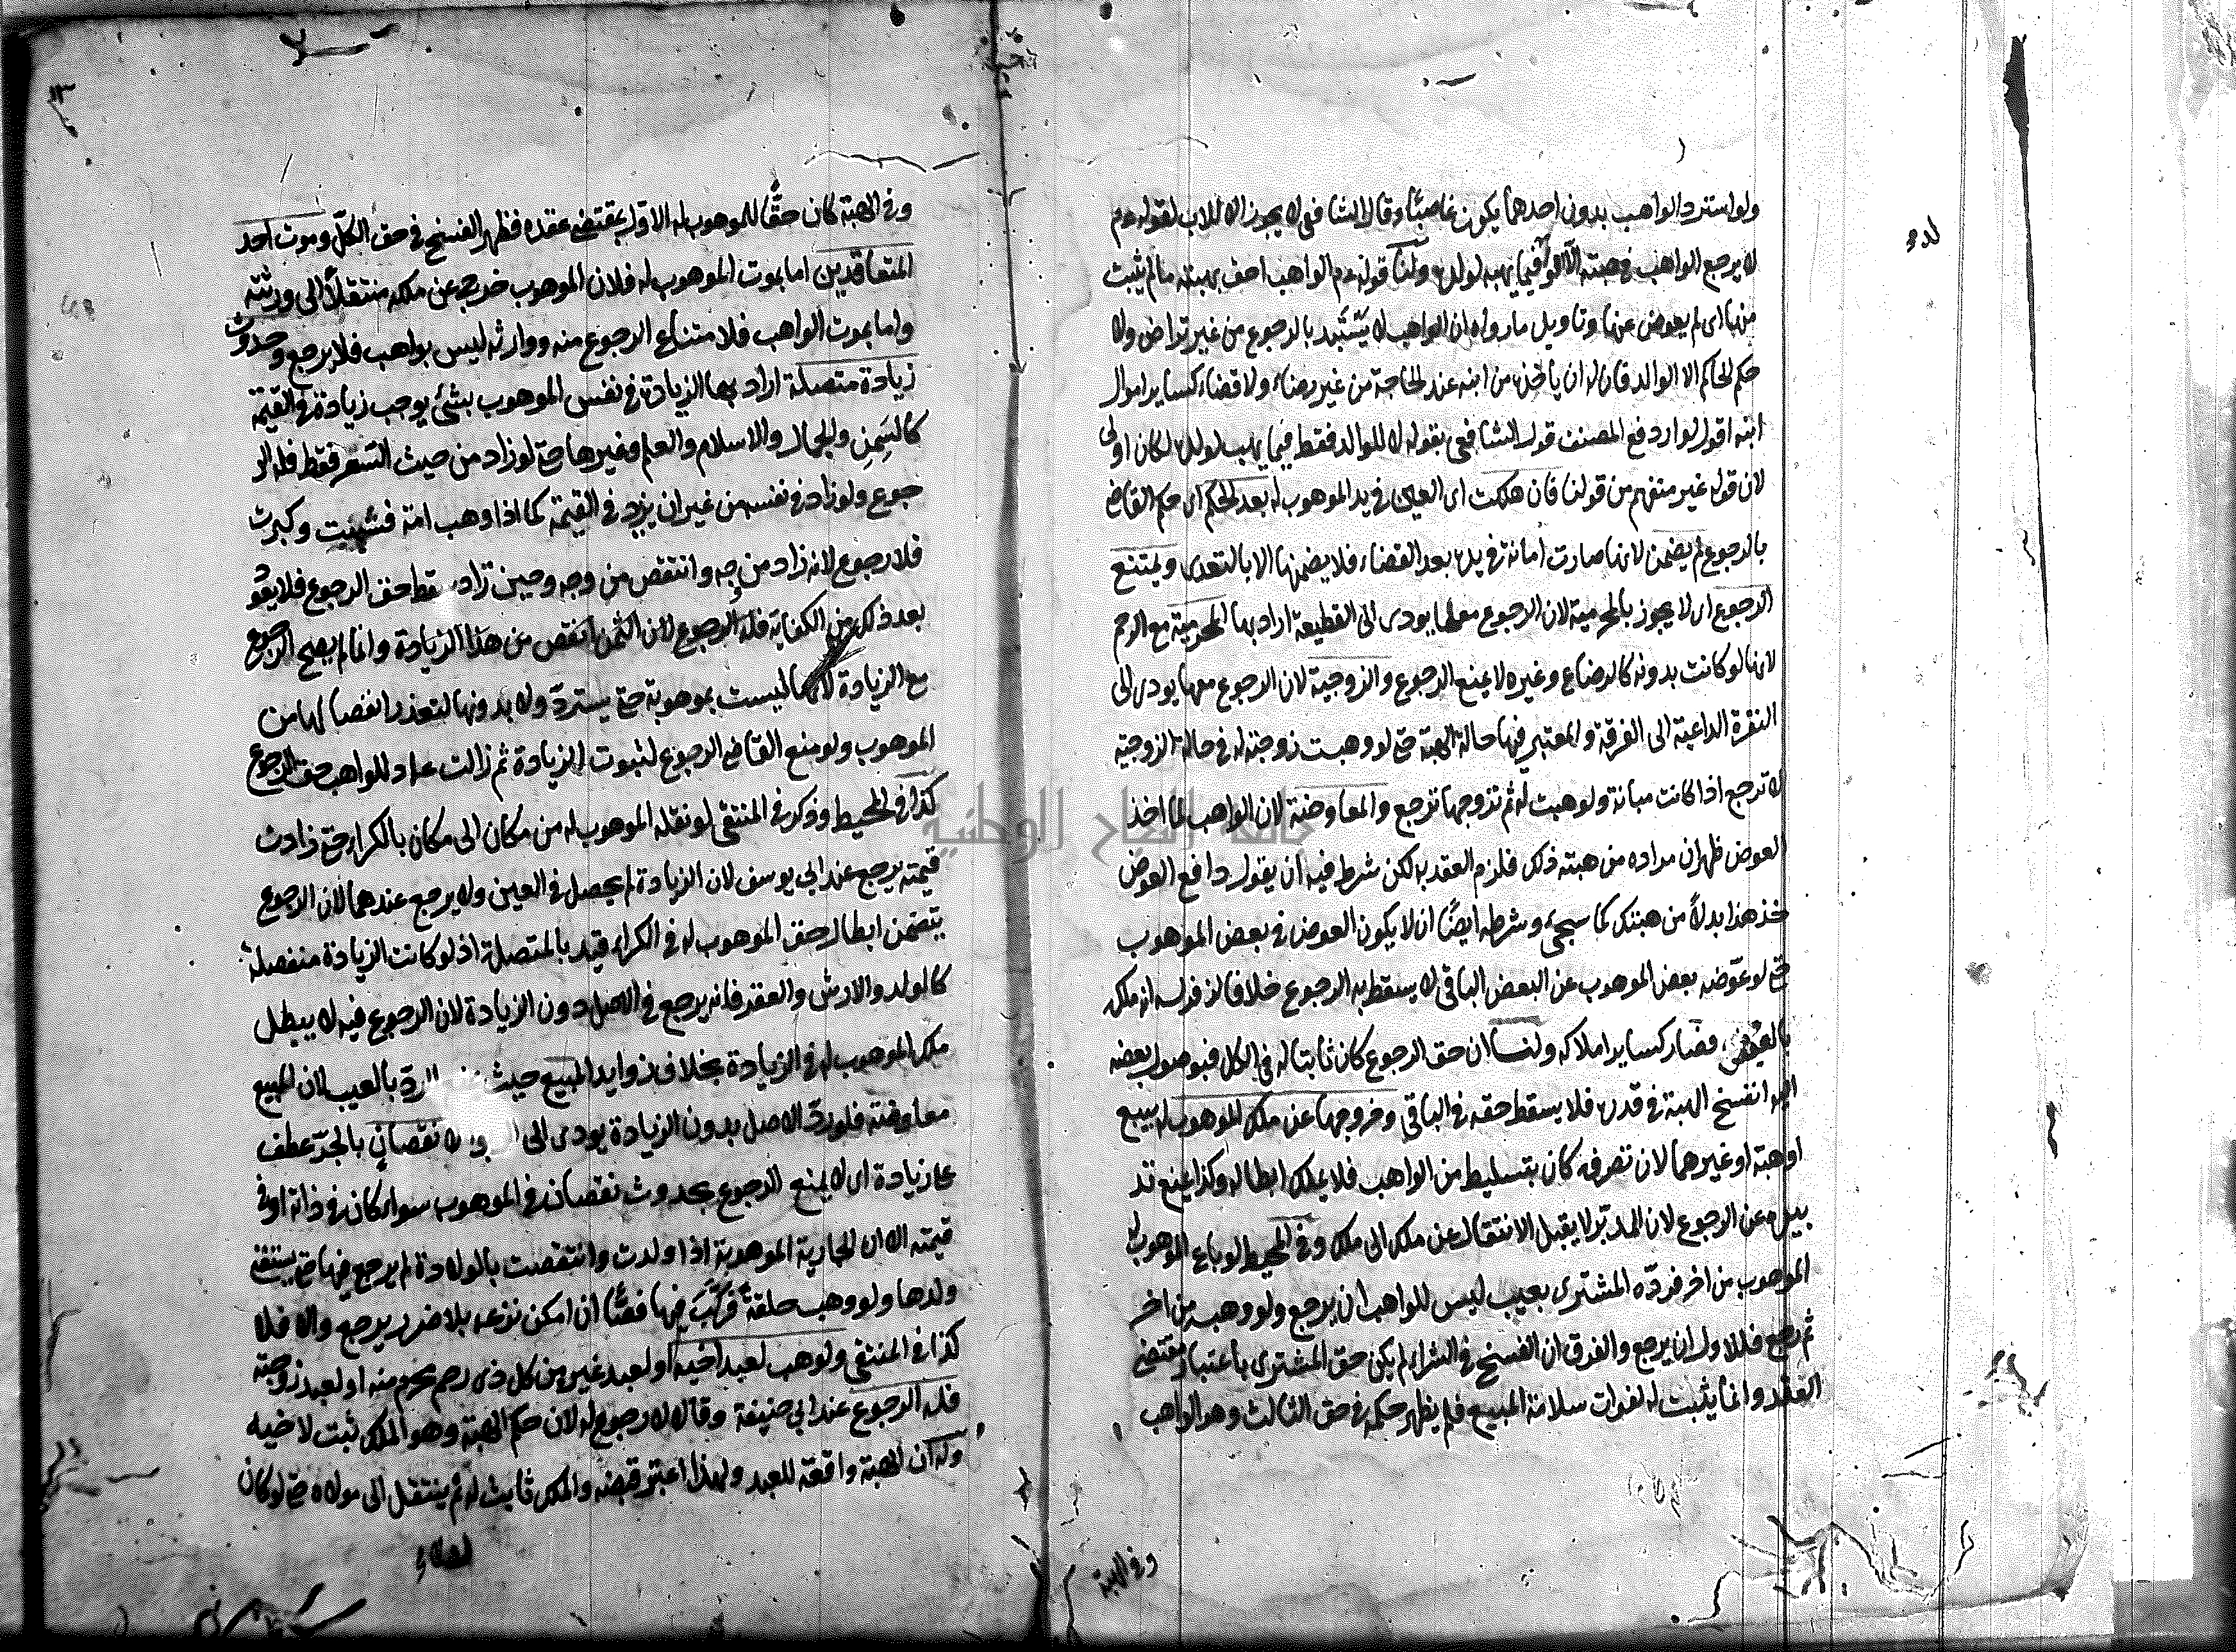 ولو استرد الواهب بدون احدهما يكون غاصبًا وقال الشافعى لا يجوز الا للاب لقوله عم
لا يرجع الواهب فى هبته الا الوالد فيما يهبه لولده ولنا قوله عم الواهب احق بهبته مالم يثبت
منها اى لم يعوض عنها وتاويل ما رواه ان الواهب لا يستبد بالرجوع من غير تراض ولا
حكم الحاكم الا الوالد فان له ان ياخذه من ابنه عند الحاجة من غير رضاء ولا قضاء كساير اموال
ابنه اقول لو اردفع المصنف قول الشافعى بقوله لا للوالد فقط فيما يهب لولده لكان اولى
لان قوله غير متفهم من قولنا فان هلكت اى العين فى يد الموهوب له بعد الحكم اى حكم القاضى
بالرجوع لم يضمن لانها صارت امانة فى يده بعد القضاء فلا يضمنها الا بالتعدى ويمتنع
الرجوع اى لا يجوز بالمحرمية لان الرجوع معها يودى الى القطيعة اراد بها المحرمية مع الرحم
لانها لو كانت بدونه كالرضاع وغيره لا يمنع الرجوع والزوجية لان الرجوع معها يودى الى
النفرة الداعية الى الفرقة والمعتبر فيها حالة الهبة حتى لو وهبت زوجته له فى حالة الزوجية
لا ترجع اذا كانت مبانة ولو وهبت له ثم تزوجها ترجع والمعاوضة لان الواهب لما اخذ
العوض ظهر ان مراده من هبته ذلك فلزم العقد به لكن شرط فيه ان يقول دافع العوض
خذ هذا بدلًا من هبتك كما سيجئ وشرطه ايضًا ان لا يكون العوض فى بعض الموهوب
حتى لو عوّضه بعض الموهوب عن البعض الباقى لا يسقط به الرجوع خلافا لزفر له انه ملكه
بالقبض فصار كساير املاكه ولنا ان حق الرجوع كان ثابتا له فى الكل فبوصول بعضه
اليه انفسخ الهبة فى قدره فلا يسقط حقه فى الباقى وخروجها عن ملك الموهوب له ببيع
او هبة او غيرهما لان تصرفه كان بتسليط من الواهب فلا يملك ابطاله وكذا يمنع تد
بيره عن الرجوع لان المدبر لا يقبل الانتقال عن ملك الى ملك وفى المحيط لو باع الموهوب له
الموهوب من اخر فردّه المشترى بعيب ليس للواهب ان يرجع ولو وهبه من اخر
ثم رجع فللاول ان يرجع والفرق ان الفسخ فى الشراء لم يكن حق المشترى باعتبار مقتضى
العقد وانما يثبت له لفوات سلامة المبيع فلم يظهر حكمه فى حق الثالث وهو الواهب
وفى الهبة
وفى الهبة كان حقًّا للموهوب له الاول بمقتضى عقده فظهر الفسخ فى حق الكلّ وموت احد
المتعاقدين اما بموت الموهوب له فلان الموهوب خرج عن ملكه منتقلًا الى ورثته
واما بموت الواهب فلامتناع الرجوع منه ووارثه ليس بواهب فلا يرجع وحدوث
زيادة متصلة اراد بها الزيادة فى نفس الموهوب بشئ يوجب زيادة فى القيمة
كالسِمَنِ والجمال والاسلام والعلم وغيرها حتى لو زاد من حيث السّعر فقط فله الر
جوع ولو زاد فى نفسه من غير ان يزيد فى القيمة كما اذا وهب امة فشبّت وكبرت
فلا رجوع لانه زاد من وجه وانتقص من وجه وحين زاد سقط حق الرجوع فلا يعود
بعد ذلك من الكفاية فله الرجوع لان الثمن انقص من هذا الزيادة وانما لم يصح الرجوع
مع الزيادة لانها ليست بموهوبة حتى يستردّ ولا بدونها لتعذر انفصالها من
الموهوب ولو منع القاضى الرجوع لثبوت الزيادة ثم زالت عاد للواهب حق الرجوع
كذا فى المحيط وذكر فى المنتقى لو نقله الموهوب له من مكان الى مكان بالكراء حتى زادت
قيمته يرجع عند ابى يوسف لان الزيادة لم يحصل فى العين ولا يرجع عندهما لان الرجوع
يتضمن ابطال حق الموهوب له فى الكراء قيد بالمتصلة اذ لو كانت الزيادة منفصلة
كالولد والارش والعقر فانه يرجع فى الاصل دون الزيادة لان الرجوع فيه لا يبطل
ملك الموهوب له فى الزيادة بخلاف زوايد المبيع حيث الردّ بالعيب لان المبيع
معاوضة فلو ردّ الاصل بدون الزيادة يودى الى لا نقصانٍ بالجرّ عطف
على زيادة اى لا يمنع الرجوع بحدوث نقصان فى الموهوب سواء كان فى ذاته او فى
قيمته الا ان الجارية الموهوبة اذا ولدت وانتقصت بالولادة لم يرجع فيها حتى يستغنى
ولدها ولو وهب حلقةً فركّبَ فيها فصًّا ان امكن نزعه بلا ضرر يرجع والا فلا
كذا فى المنتقى ولو وهب لعبد اخيه او لعبد غيره من كل ذى رحم محرم منه او لعبد زوجته
فله الرجوع عند ابى حنيفة وقالا لا رجوع له لان حكم الهبة وهو الملك ثبت لاخيه
وله ان الهبة واقعة للعبد ولهذا اعتبر قبضه والملك ثابت له ثم ينتقل الى مولاه حتى لو كان